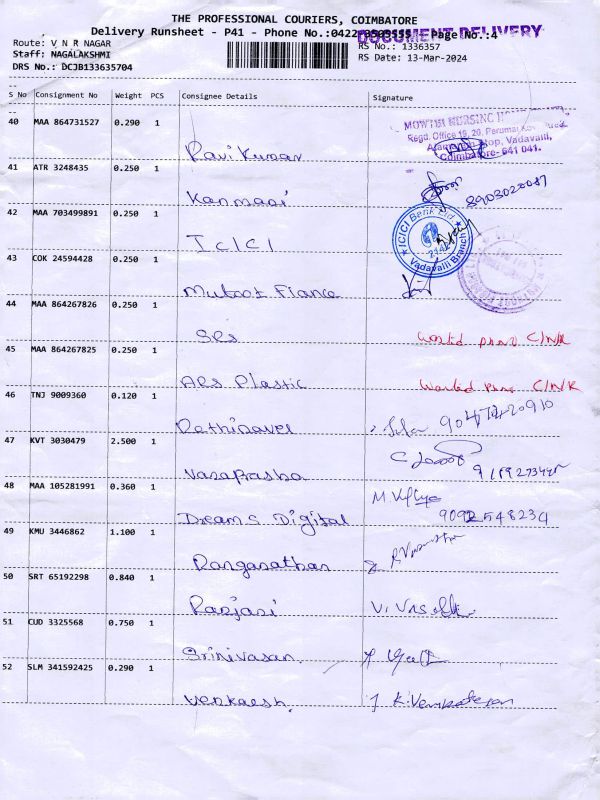 THE PROFESSIONAL COURIERS, COIMBATORE
Delivery Runsheet - P41 - Phone No.:0422 Page No.:4
DOCUMENT DELIVERY
Route: V N R NAGAR
Staff: NAGALAKSHMI
DRS No.: DCJB133635704
RS No.: 1336357
RS Date: 13-Mar-2024
S No Consignment No Weight PCS Consignee Details Signature
40 MAA 864731527 0.290 1
Ravi Kumar
MOWTHI NURSING
Regd. Office 19, 20, Perumal
Stop, Vadavalli,
Coimbatore- 641 041.
41 ATR 3248435 0.250 1
Kanmani
8903020087
42 MAA 703499891 0.250 1
ICICI
ICICI Bank Ltd.
Vadavalli Branch
43 COK 24594428 0.250 1
Mutoot Fiance
44 MAA 864267826 0.250 1
SRS
C/N/R
45 MAA 864267825 0.250 1
ARS Plastic
C/N/R
46 TNJ 9009360 0.120 1
Rathinavel
47 KVT 3030479 2.500 1
Vasaprasba
48 MAA 105281991 0.360 1
Dreams Digital
9092548234
49 KMU 3446862 1.100 1
Rangarathan
50 SRT 65192298 0.840 1
Ranjani
51 CUD 3325568 0.750 1
Srinivasan.
52 SLM 341592425 0.290 1
Venkaesh.
K. Venkatesan